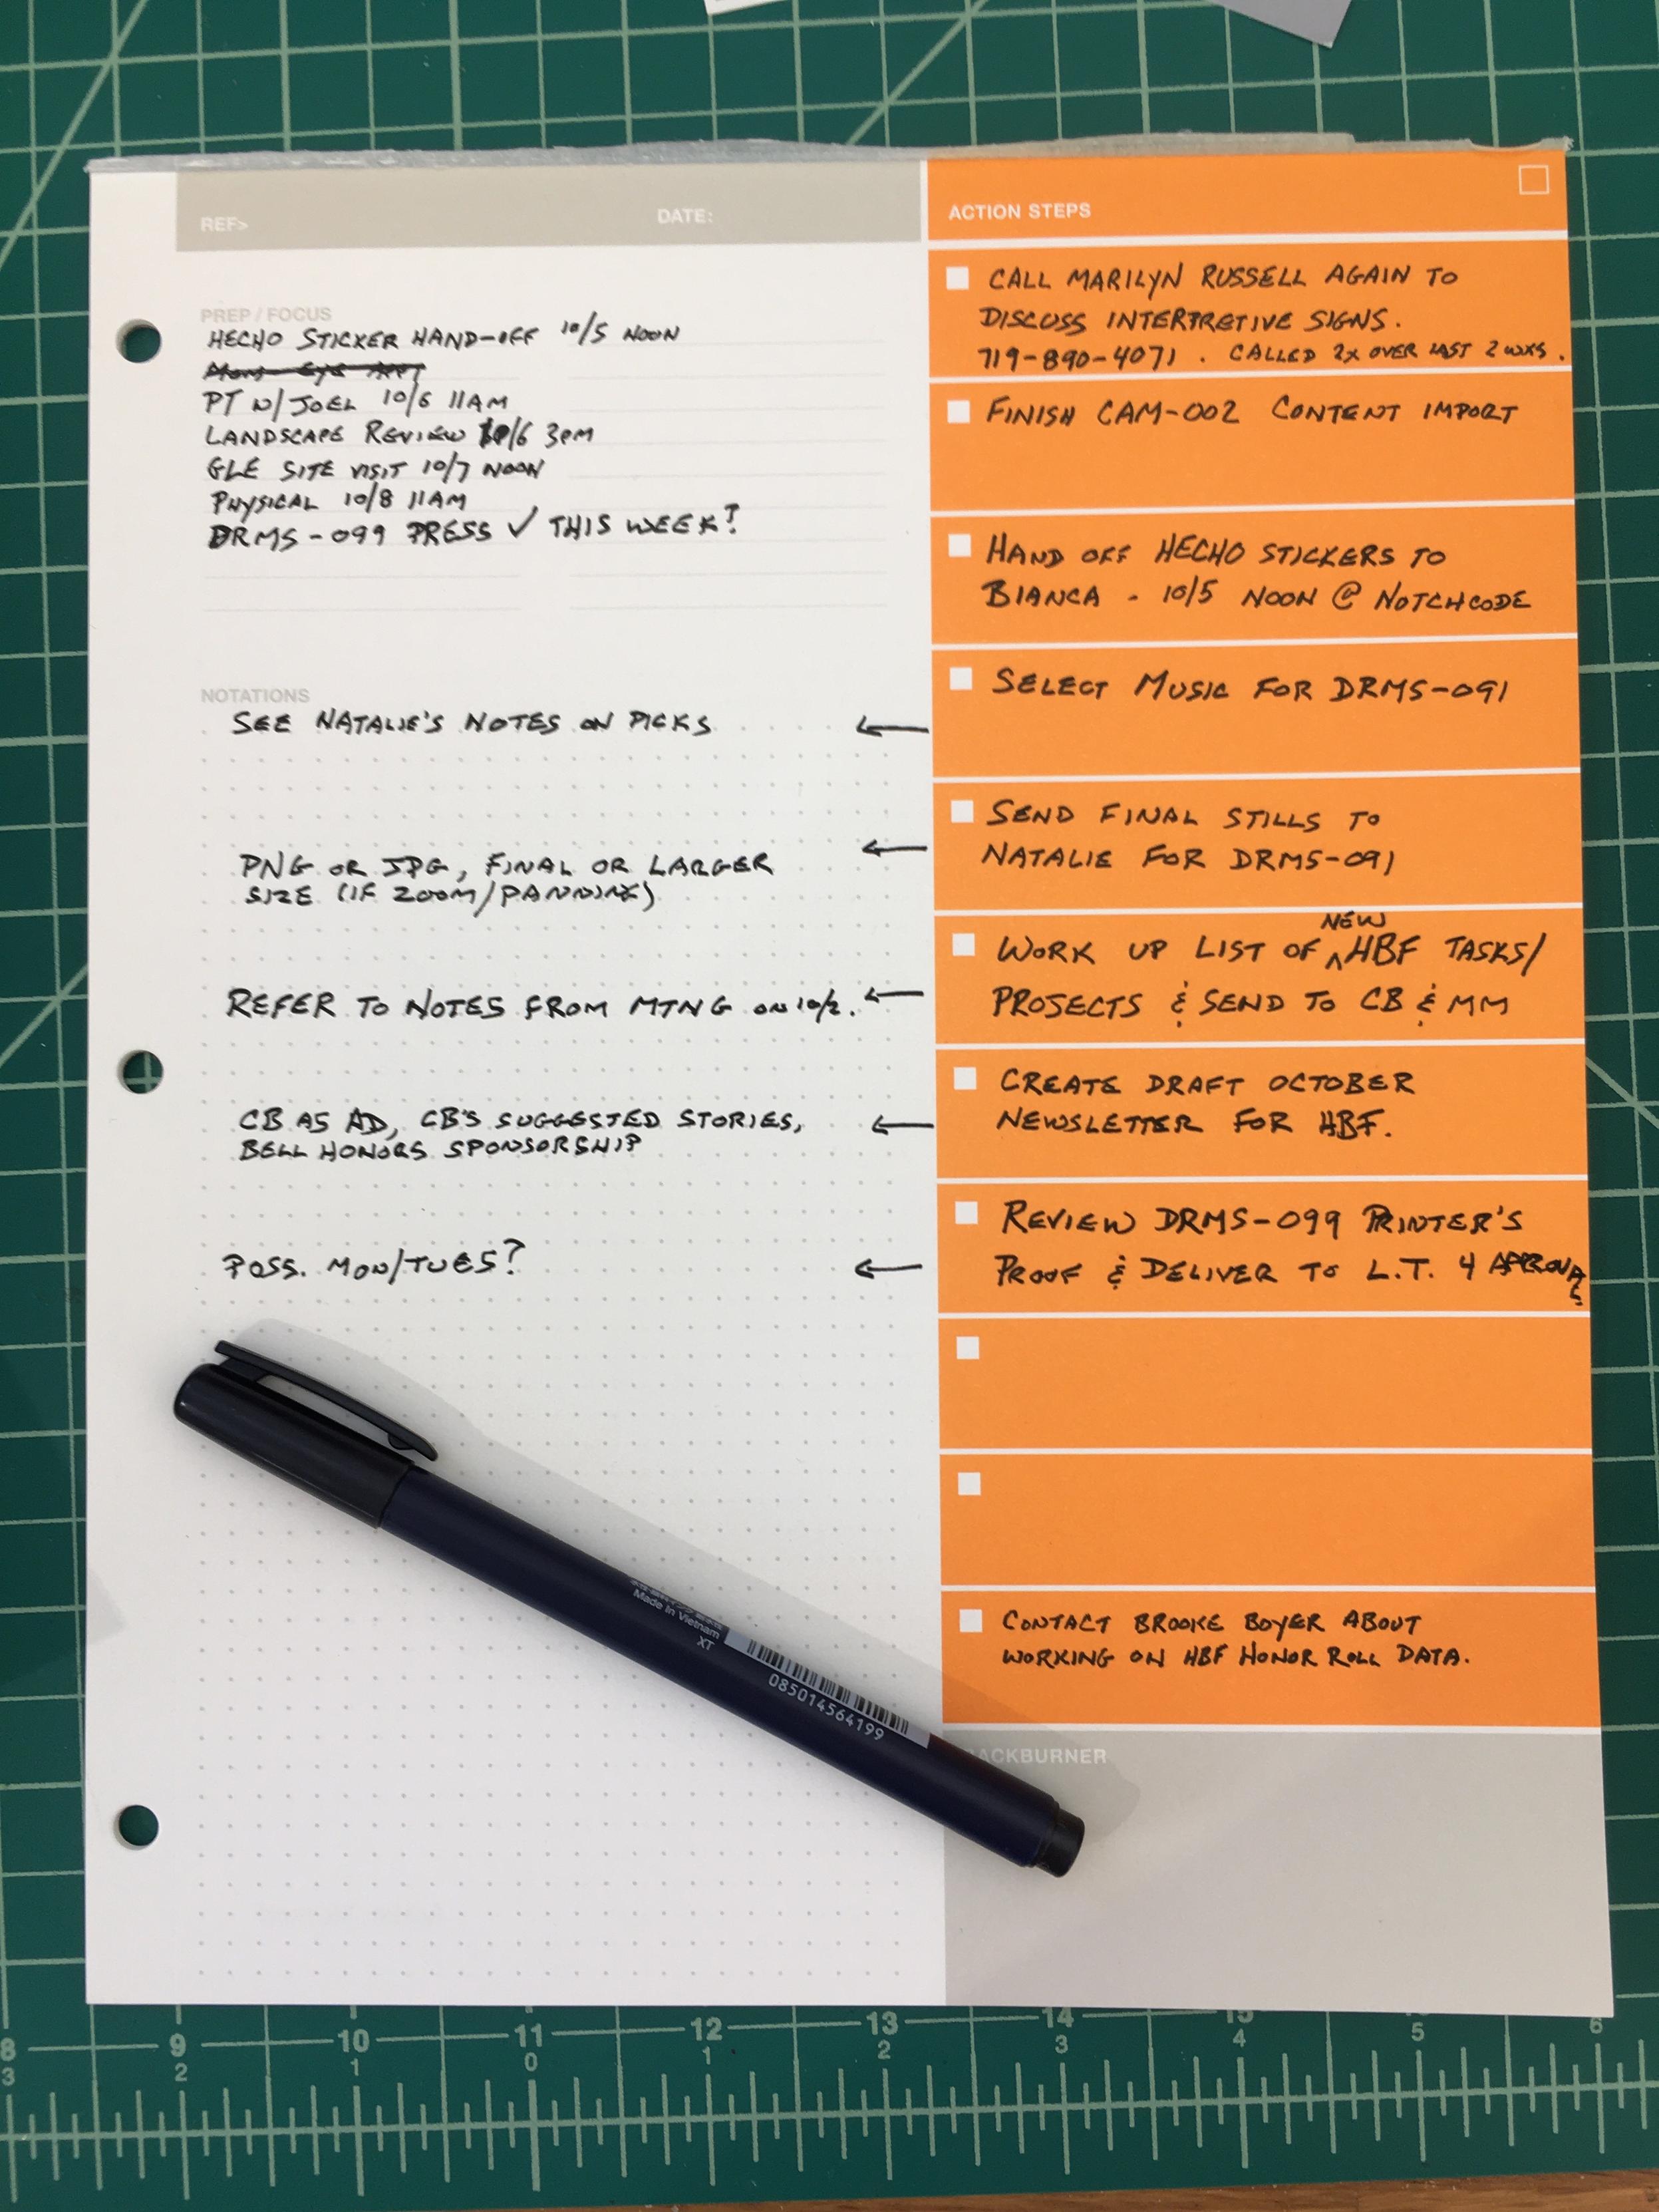 REF>
DATE:
PREP / FOCUS
HECHO STICKER HAND-OFF 10/5 NOON
PT W/JOEL 10/6 11AM
LANDSCAPE REVIEW 10/6 3PM
GLE SITE VISIT 10/7 NOON
PHYSICAL 10/8 11AM
DRMS-099 PRESS ✓ THIS WEEK?
NOTATIONS
SEE NATALIE'S NOTES ON PICKS
PNG OR JPG, FINAL OR LARGER
SIZE (IF ZOOM/PANNING)
REFER TO NOTES FROM MTNG ON 10/2.
CB AS AD, CB'S SUGGESTED STORIES,
BELL HONORS SPONSORSHIP
POSS. MON/TUES?
ACTION STEPS
CALL MARILYN RUSSELL AGAIN TO
DISCUSS INTERPRETIVE SIGNS.
719-890-4071. CALLED 2X OVER LAST 2 WKS.
FINISH CAM-002 CONTENT IMPORT
HAND OFF HECHO STICKERS TO
BIANCA - 10/5 NOON @ NOTCHCODE
SELECT MUSIC FOR DRMS-091
SEND FINAL STILLS TO
NATALIE FOR DRMS-091
WORK UP LIST OF NEW HBF TASKS/
PROJECTS & SEND TO CB & MM
CREATE DRAFT OCTOBER
NEWSLETTER FOR HBF.
REVIEW DRMS-099 PRINTER'S
PROOF & DELIVER TO L.T. 4 APPROVAL
CONTACT BROOKE BOYER ABOUT
WORKING ON HBF HONOR ROLL DATA.
ACKBURNER
Made in Vietnam
XT
085014564199
8 9 10 11 12 13 14 15
3 2 1 0 1 2 3 4 5 6